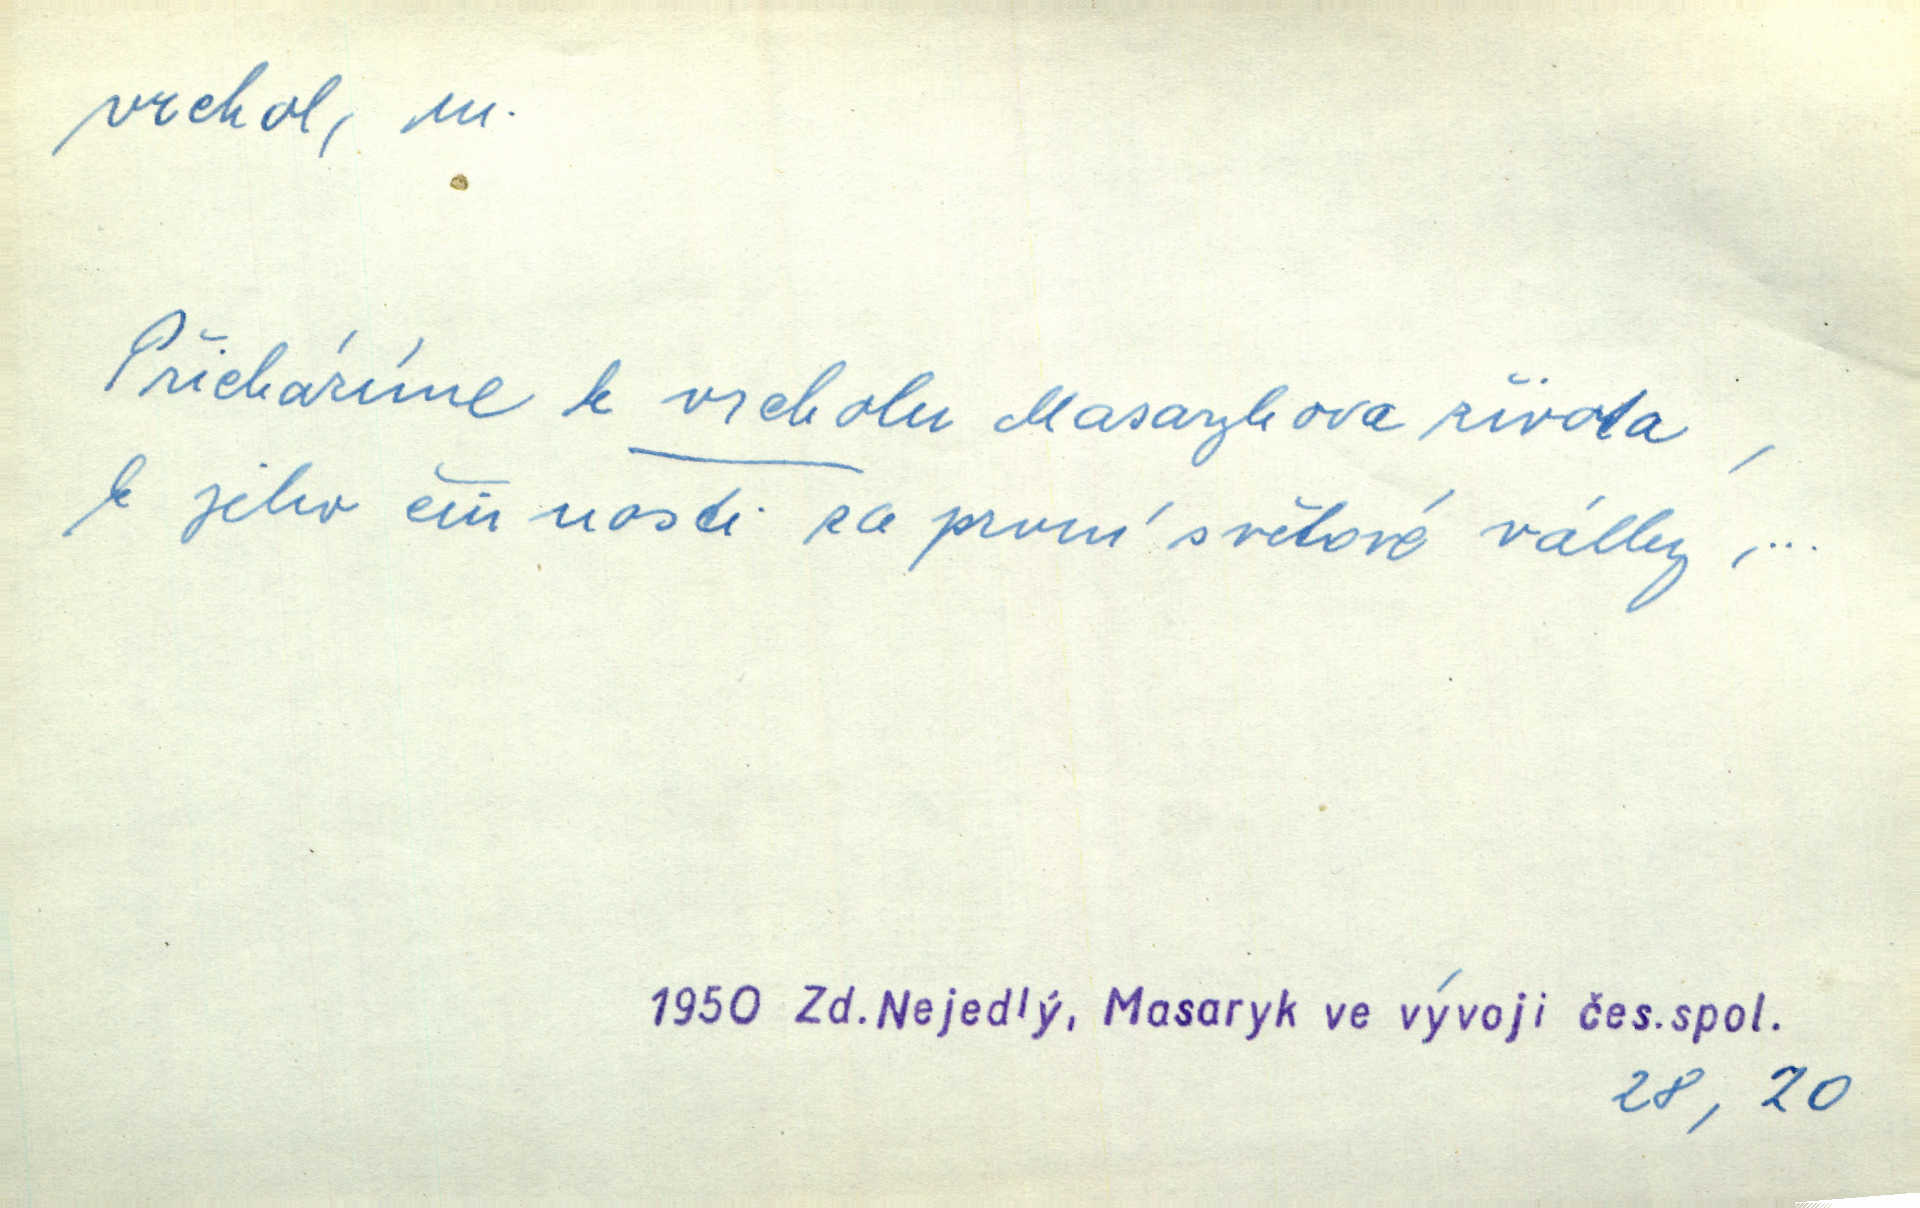 vrchol, m.
Přicházíme k vrcholu Masarykova života,
k jeho činnosti za první světové války, ...
1950 Zd.Nejedlý, Masaryk ve vývoji čes.spol.
28, 20